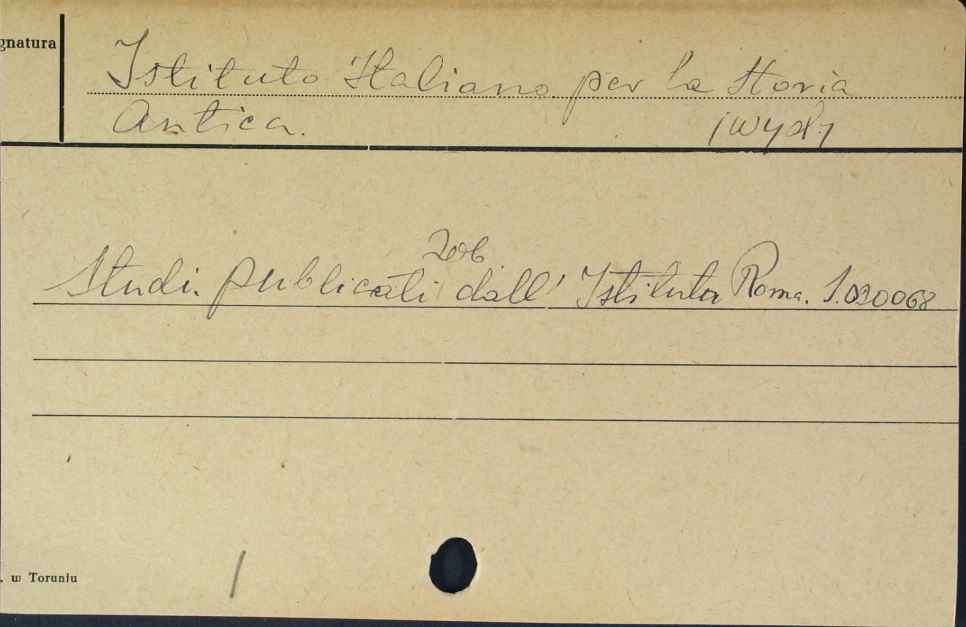 gnatura
Istituto Italiano per la Storia
Antica. (wyd)
Zob.
Studi pubblicati dall' Istituto Roma. S.020068
. w Toruniu